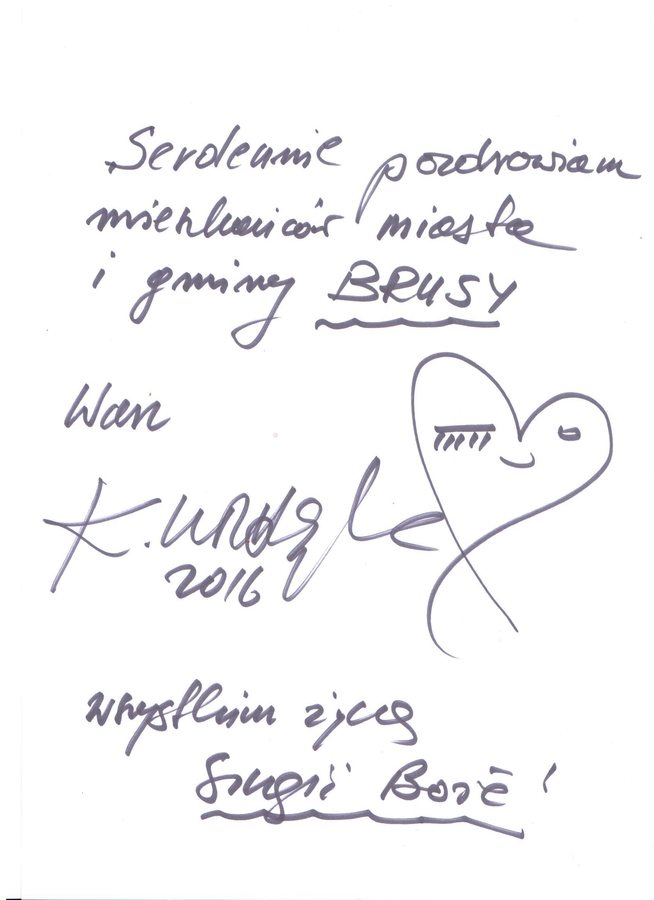 Serdecznie pozdrawiam
mieszkańców miasta
i gminy BRUSY
Wasz
K. 
2016
wszystkim życzę
Bożë!